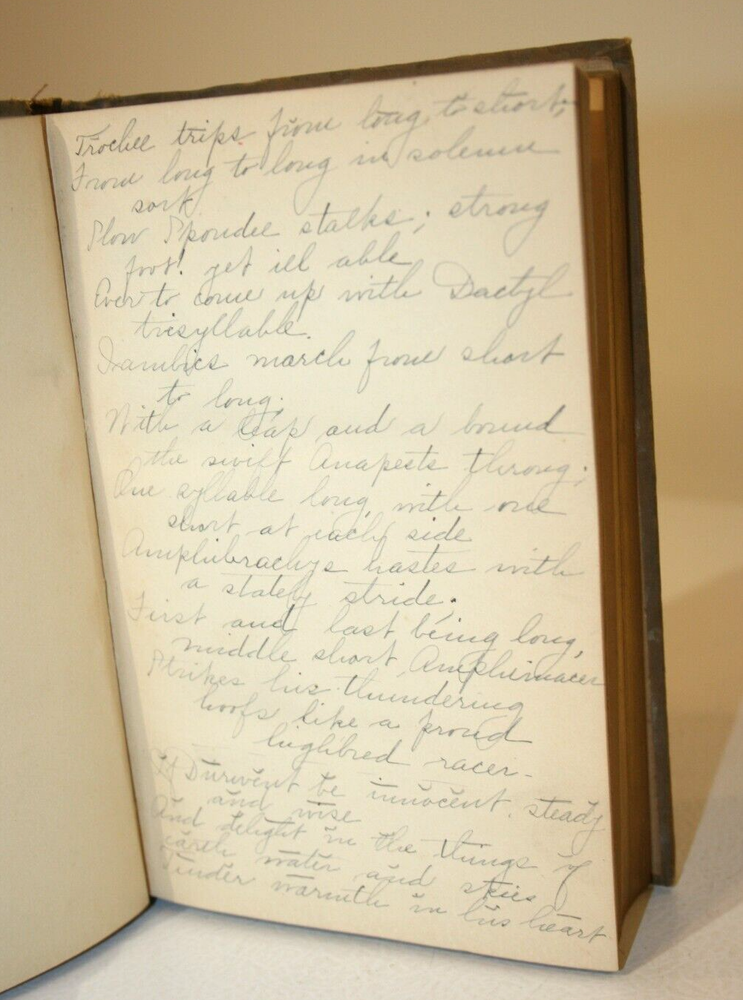 Trochee trips from long to short;
From long to long in solemn
sort
Slow Spondee stalks; strong
foot! yet ill able
Ever to come up with Dactyl
trisyllable.
Iambics march from short
to long;
With a leap and a bound
the swift Anapests throng;
One syllable long, with one
short at each side
Amphibrachys hastes with
a stately stride.
First and last being long,
middle short, Amphimacer
Strikes his thundering
hoofs like a proud
highbred racer-
If Durwent be innocent, steady
and wise
And delight in the things of
earth water and skies
Tender warmth in his heart